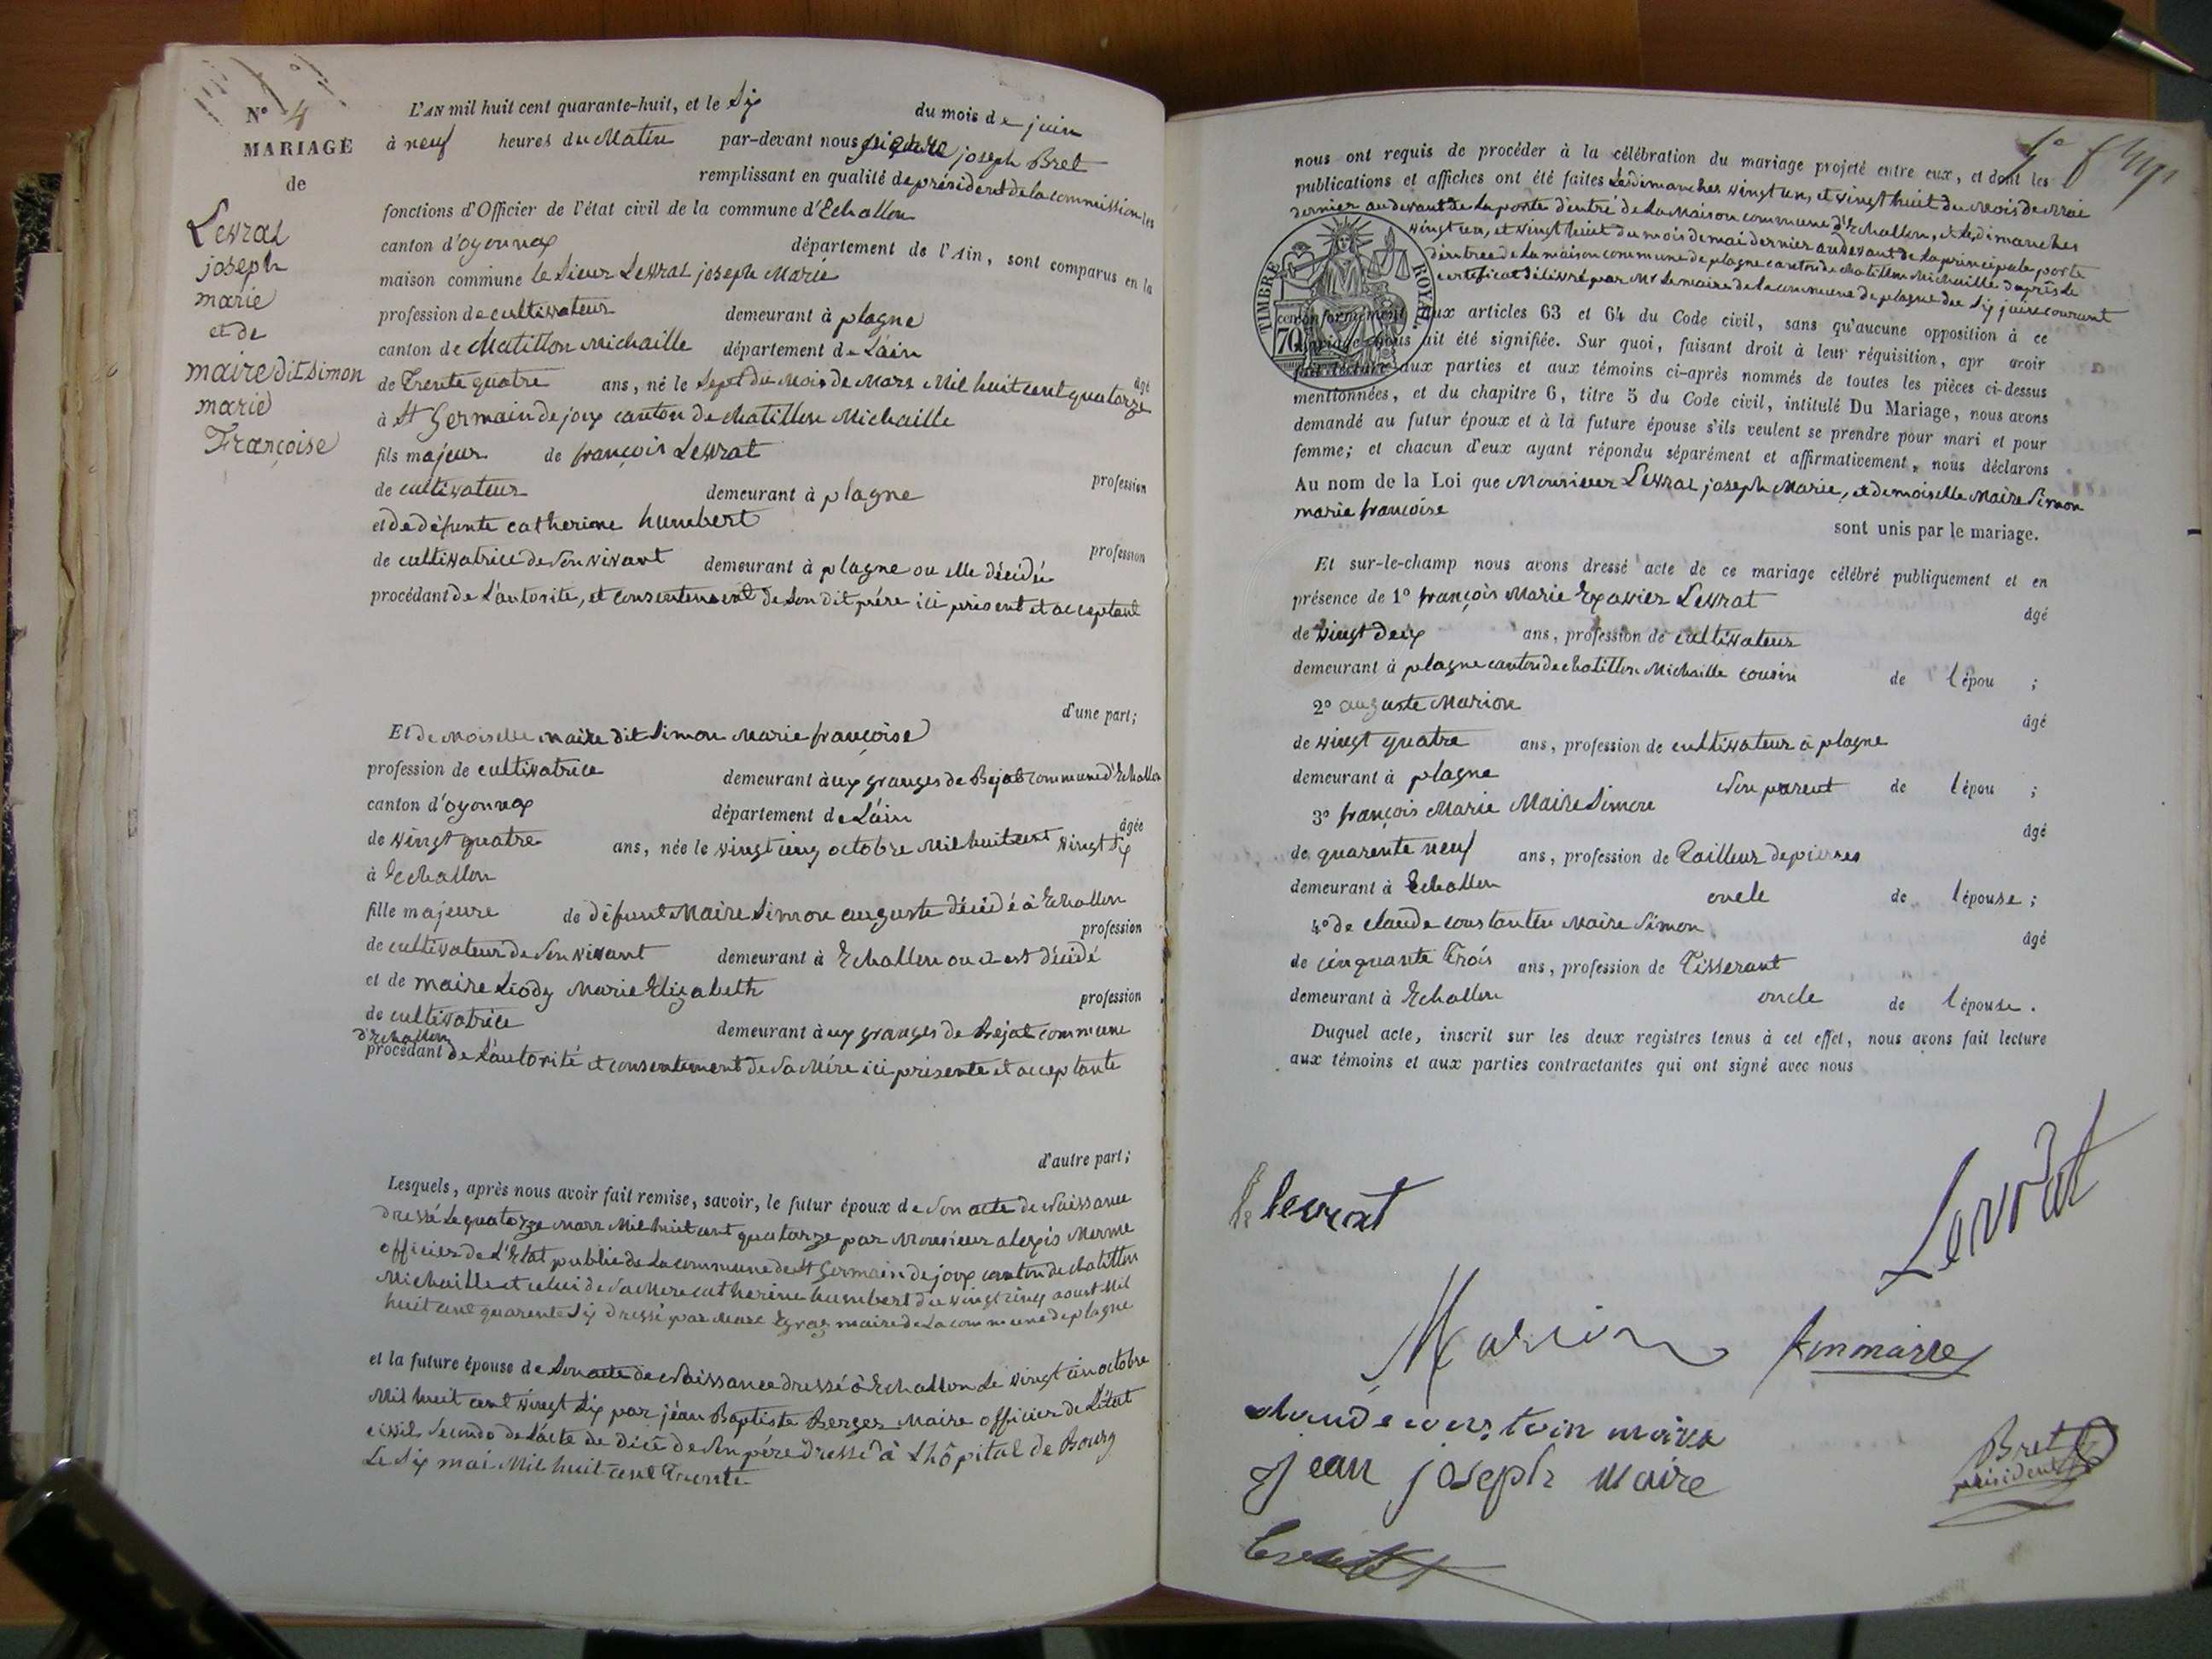 N° 4
MARIAGE
de
Levrat
joseph
marie
et de
maire dit Simon
marie
Françoise
L'AN mil huit cent quarante-huit, et le Six du mois de juin
à neuf heures du Matin par-devant nous joseph Bret
remplissant en qualité de président de la commission les
fonctions d'Officier de l'état civil de la commune d'Echallon
canton d'oyonnax département de l'Ain, sont comparus en la
maison commune le Sieur Levrat joseph Marie
profession de cultivateur demeurant à plagne
canton de Chatillon Michaille département de L'ain âgé
de Trente quatre ans, né le Sept du Mois de Mars Mil huit cent quatorze
à St Germain de joux canton de chatillon Michaille
fils majeur de françois Levrat profession
de cultivateur demeurant à plagne
et de défunte catherine humbert profession
de cultivatrice de Son vivant demeurant à plagne ou elle décédée
procédant de L'autorité, et consentement de Son dit père ici présent et acceptant
d'une part;
Et demoiselle maire dit Simon Marie françoise
profession de cultivatrice demeurant à ux granges de Bejat commune d'Echallon
canton d'oyonnax département de L'ain âgée
de vingt quatre ans, née le vingt cinq octobre Mil huit cent vingt Six
à Echallon
fille majeure de défunt Maire Simon auguste décédé à Echallon profession
de cultivateur de Son vivant demeurant à Echallon ou il est décédé
et de maire Liody Marie Elizabeth profession
de cultivatrice demeurant à ux granges de Bejat commune
d'Echallon
procédant de L'autorité et consentement de Sa Mére ici présente et acceptante
d'autre part;
Lesquels, après nous avoir fait remise, savoir, le futur époux de Son acte de Naissance
dressé Le quatorze Mars Mil huit cent quatorze par Monsieur alexis Merme
officier de L'Etat public de La commune de St Germain de joux canton de chatillon
Michaille et celui de Sa Mere catherine humbert du vingt cinq aoust Mil
huit cent quarente Six dressé par Marc Egraz maire de La commune de plagne
et la future épouse de Son acte de Naissance dressé à Echallon Le vingt cin octobre
Mil huit cent vingt Six par jéan Baptiste Berger Maire officier de L'état
civil Secondo de L'acte de Décé de Son pére dressé à L'hôpital de Bourg
Le Six mai Mil huit cent Trente
nous ont requis de procéder à la célébration du mariage projeté entre eux, et dont les
publications et affiches ont été faites Les dimanches vingt un, et vingt huit du Mois de Mai
dernier au devant de La porte d'entré de La Maison commune d'Echallon, et Les dimanches
vingt un, et vingt huit du mois de mai dernier au devant de La principale porte
d'entrée de La maison commune de plagne canton de chatillon Michaille d'aprês Le
certificat délivré par Mr Le maire de La commune de plagne du Six juin courant
TIMBRE ROYAL
70
conformément aux articles 63 et 64 du Code civil, sans qu'aucune opposition à ce
mariage nous ait été signifiée. Sur quoi, faisant droit à leur réquisition, apr avoir
fait lecture aux parties et aux témoins ci-après nommés de toutes les pièces ci-dessus
mentionnées, et du chapitre 6, titre 5 du Code civil, intitulé Du Mariage, nous avons
demandé au futur époux et à la future épouse s'ils veulent se prendre pour mari et pour
femme; et chacun d'eux ayant répondu séparément et affirmativement, nous déclarons
Au nom de la Loi que Monsieur Levrat joseph Marie, et demoiselle Maire Simon
marie françoise
sont unis par le mariage.
Et sur-le-champ nous avons dressé acte de ce mariage célébré publiquement et en
présence de 1° françois Marie Exavier Levrat âgé
de vingt deux ans, profession de cultivateur
demeurant à plagne canton de chatillon Michaille cousin de l'épou ;
2° auguste Marion âgé
de vingt quatre ans, profession de cultivateur à plagne
demeurant à plagne Non parent de l'épou ;
3° françois Marie Maire Simon âgé
de quarente neuf ans, profession de Tailleur de pierres
demeurant à Echallon oncle de l'épouse ;
4° de claude constantin Maire Simon âgé
de cinquante Trois ans, profession de Tisserant
demeurant à Echallon oncle de l'épouse .
Duquel acte, inscrit sur les deux registres tenus à cet effet, nous avons fait lecture
aux témoins et aux parties contractantes qui ont signé avec nous
levrat
Levrat
Marion
claude constain maire
jean joseph maire
Bret
président